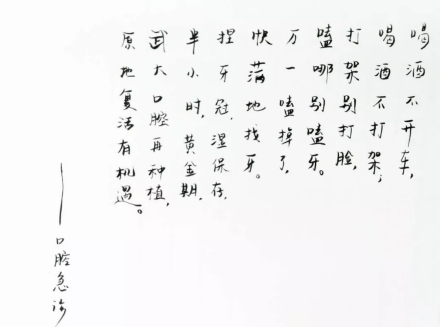 喝酒不开车，
喝酒不打架；
打架别打脸，
嗑哪别嗑牙。
万一嗑掉了，
快满地找牙。
捏牙冠，湿保存，
半小时，黄金期，
武大口腔再种植，
原地复活有机遇。
——口腔急诊